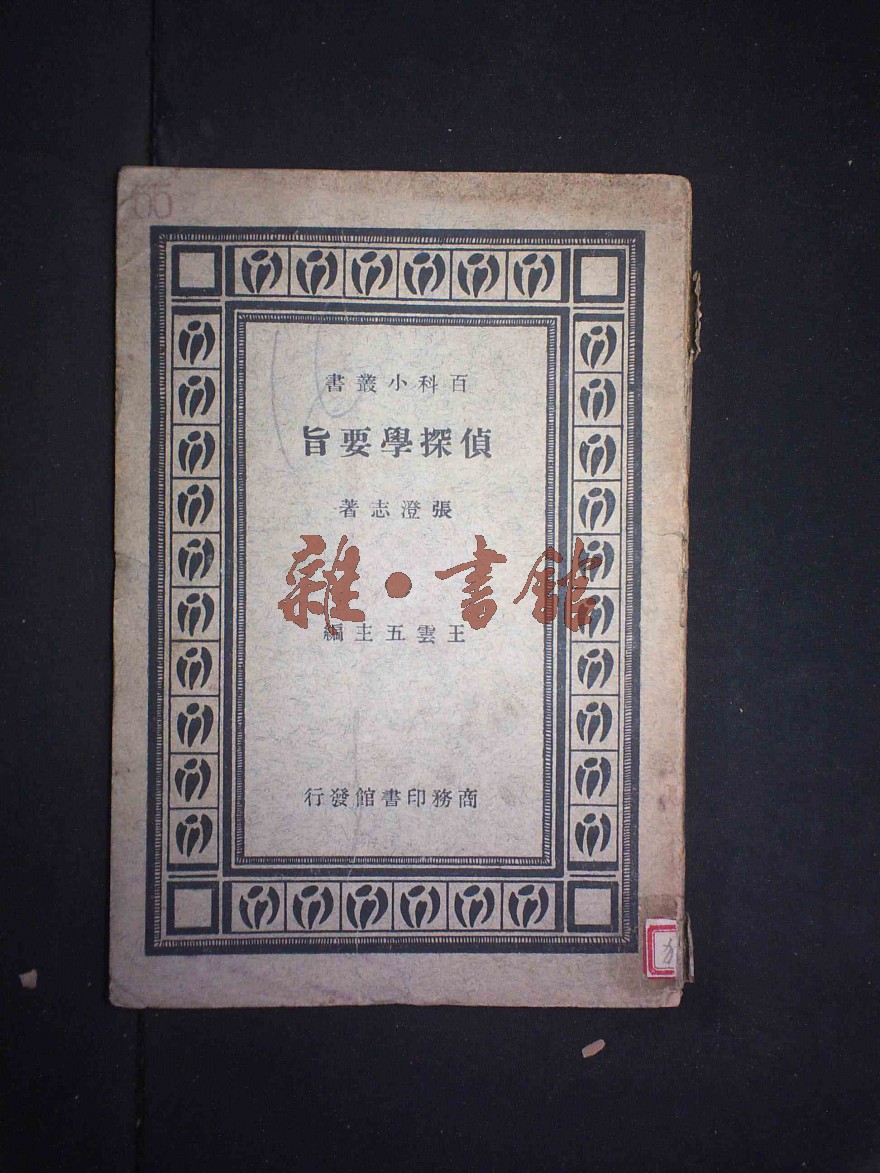 00
百科小叢書
偵探學要旨
張澄志著
雜·書館
王雲五主編
商務印書館發行